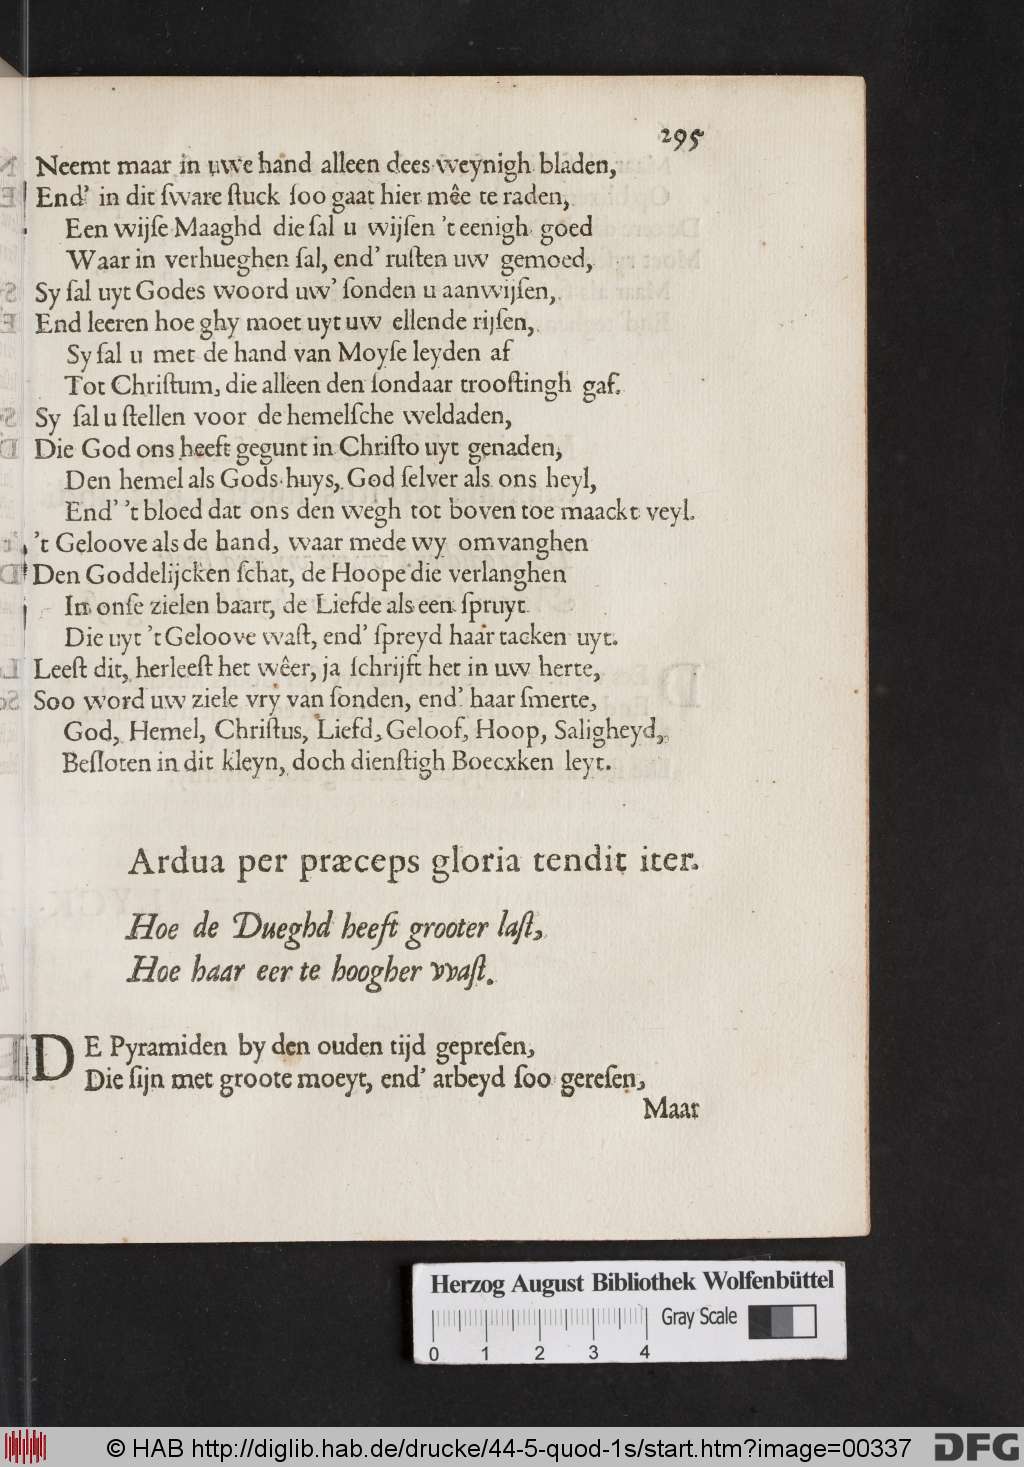 295
Neemt maar in uwe hand alleen dees weynigh bladen,
End' in dit ſware ſtuck ſoo gaat hier mêe te raden,
Een wijſe Maaghd die ſal u wijſen 't eenigh goed
Waar in verhueghen ſal, end' ruſten uw gemoed,
Sy ſal uyt Godes woord uw' ſonden u aanwijſen,
End leeren hoe ghy moet uyt uw ellende rijſen,
Sy ſal u met de hand van Moyſe leyden af
Tot Chriſtum, die alleen den ſondaar trooſtingh gaf.
Sy ſal u ſtellen voor de hemelſche weldaden,
Die God ons heeft gegunt in Chriſto uyt genaden,
Den hemel als Gods huys, God ſelver als ons heyl,
End' 't bloed dat ons den wegh tot boven toe maackt veyl.
't Geloove als de hand, waar mede wy omvanghen
Den Goddelijcken ſchat, de Hoope die verlanghen
In onſe zielen baart, de Liefde als een ſpruyt
Die uyt 't Geloove waſt, end' ſpreyd haar tacken uyt.
Leeſt dit, herleeſt het wêer, ja ſchrijft het in uw herte,
Soo word uw ziele vry van ſonden, end' haar ſmerte,
God, Hemel, Chriſtus, Liefd, Geloof, Hoop, Saligheyd,
Beſloten in dit kleyn, doch dienſtigh Boecxken leyt.
Ardua per præceps gloria tendit iter.
Hoe de Dueghd heeft grooter laſt,
Hoe haar eer te hoogher vvaſt.
DE Pyramiden by den ouden tijd gepreſen,
Die ſijn met groote moeyt, end' arbeyd ſoo gereſen,
Maar
Herzog August Bibliothek Wolfenbüttel
Gray Scale
0 1 2 3 4
© HAB http://diglib.hab.de/drucke/44-5-quod-1s/start.htm?image=00337
DFG